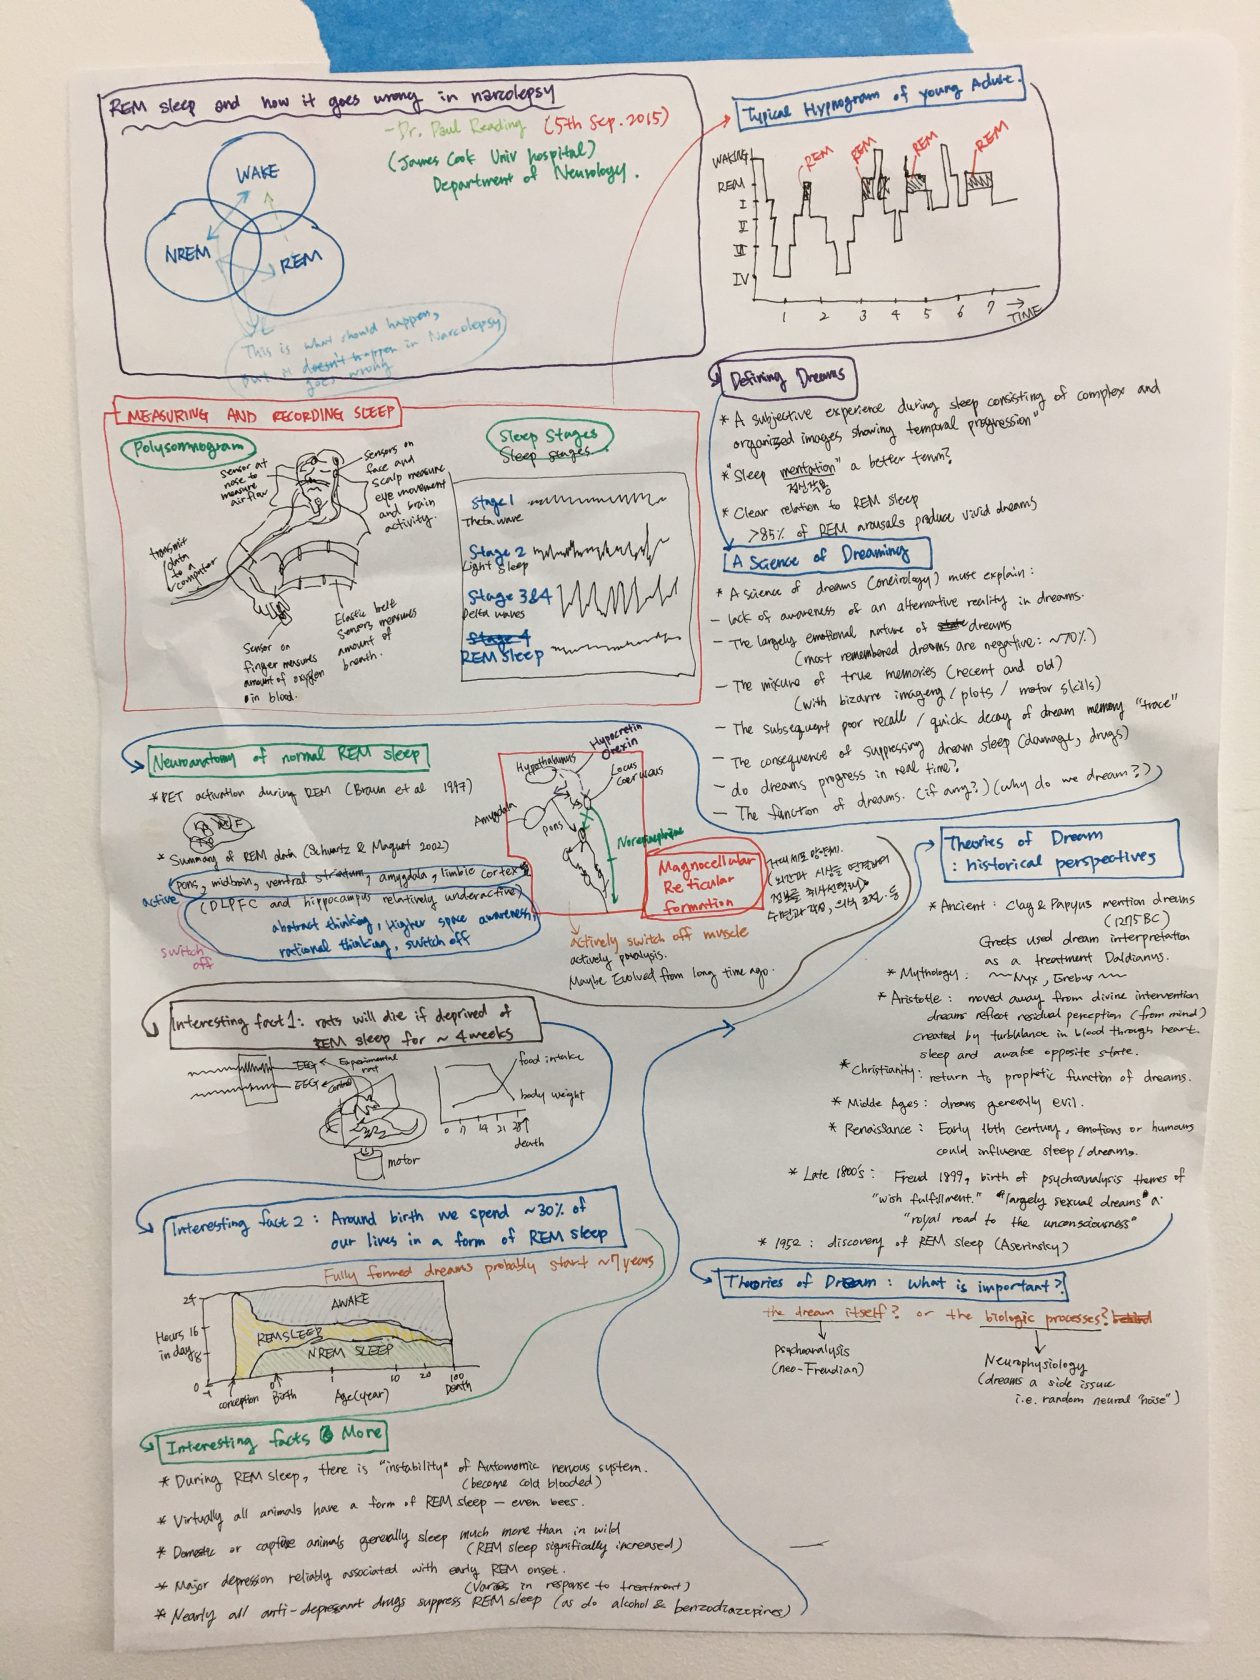 REM sleep and how it goes wrong in narcolepsy
- Dr. Paul Reading (5th Sep. 2015)
(James Cook Univ hospital)
Department of Neurology.
WAKE
NREM
REM
This is what should happen,
but it doesn't happen in Narcolepsy
goes wrong
Typical Hypnogram of young Adult.
WAKING
REM
I
II
IV
REM
REM
REM
REM
1 2 3 4 5 6 7
TIME
MEASURING AND RECORDING SLEEP
Polysomnogram
Sensor at
nose to
measure
airflow
sensors on
face and
scalp measure
eye movement
and brain
activity.
transmit
data
to a
computer
Sensor on
finger measures
amount of oxygen
in blood.
Elastic belt
sensors measures
amount of
breath.
Sleep Stages
Sleep stages.
Stage 1
Theta wave
Stage 2
Light Sleep
Stage 3&4
Delta waves
Stage 4
REM sleep
Defining Dreams
* A subjective experience during sleep consisting of complex and
organized images showing temporal progression"
* "Sleep mentation" a better term?
정신작용
* Clear relation to REM sleep
>85% of REM arousals produce vivid dreams
A Science of Dreaming
* A science of dreams (oneirology) must explain:
- lack of awareness of an alternative reality in dreams.
- The largely emotional nature of state dreams
(most remembered dreams are negative: ~70%)
- The mixture of true memories (recent and old)
(with bizarre imagery / plots / motor skills)
- The subsequent poor recall / quick decay of dream memory "trace"
- The consequence of suppressing dream sleep (damage, drugs)
- do dreams progress in real time?
- The function of dreams. (if any?) (why do we dream?)
Neuroanatomy of normal REM sleep
* PET activation during REM (Braun et al 1997)
* Summary of REM data (Schwartz & Maquet 2002)
pons, midbrain, ventral striatum, amygdala, limbic cortex
active
(DLPFC and hippocampus relatively underactive)
abstract thinking, Higher space awareness,
rational thinking, switch off
switch
off
Hypothalamus
Hypocretin
Orexin
Locus
Coeruleus
Amygdala
pons
Norepinephrine
Magnocellular
Reticular
formation
actively switch off muscle
actively paralysis.
Maybe Evolved from long time ago.
Interesting fact 1: rats will die if deprived of
REM sleep for ~ 4 weeks
EEG
Experimental
rat
EEG
control
motor
food intake
body weight
0 7 14 21 28
death
Interesting fact 2 : Around birth we spend ~30% of
our lives in a form of REM sleep
Fully formed dreams probably start ~7 years
24
Hours 16
in day 8
0
AWAKE
REM SLEEP
NREM SLEEP
-1
conception
Birth
1 10 20 100
Age (year)
Death
Interesting facts & More
* During REM sleep, there is "instability" of Automomic nervous system.
(become cold blooded)
* Virtually all animals have a form of REM sleep - even bees.
* Domestic or captive animals generally sleep much more than in wild
(REM sleep significantly increased)
* Major depression reliably associated with early REM onset.
(Varies in response to treatment)
* Nearly all anti-depressant drugs suppress REM sleep (as do alcohol & benzodiazepines)
Theories of Dream
: historical perspectives
* Ancient : Clay & Papyus mention dreams
(1275 BC)
Greeks used dream interpretation
as a treatment Daldianus.
* Mythology : Nyx, Erebus
* Aristotle : moved away from divine intervention
dreams reflect residual perception (from mind)
created by turbulance in blood through heart.
sleep and awake opposite state.
* Christianity : return to prophetic function of dreams.
* Midde Ages : dreams generally evil.
* Renaissance : Early 16th Century, emotions or humours
could influence sleep / dreams.
* Late 1800's : Freud 1899, birth of psychoanalysis themes of
"wish fulfillment." "largely sexual dreams" a
"royal road to the unconsciousness"
* 1952 : discovery of REM sleep (Aserinsky)
Theories of Dream : what is important?
the dream itself? or the biologic processes? behind
Psychoanalysis
(neo-Freudian)
Neurophysiology
(dreams a side issue
i.e. random neural "noise")